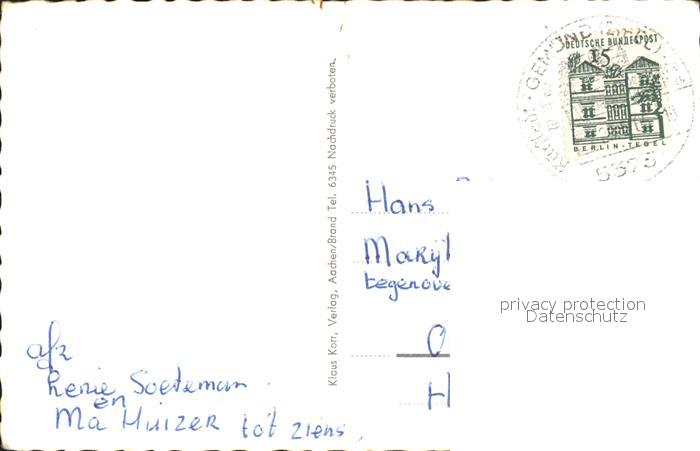 GEMÜND (EIFEL)
DEUTSCHE BUNDESPOST
15
BERLIN-TEGEL
Kurort
5373
Klaus Korr, Verlag, Aachen/Brand Tel. 6345 Nachdruck verboten.
Hans
Marijk
tegenove
O
H
privacy protection
Datenschutz
afz
Renie Soeteman.
en
Ma Huizer tot ziens.